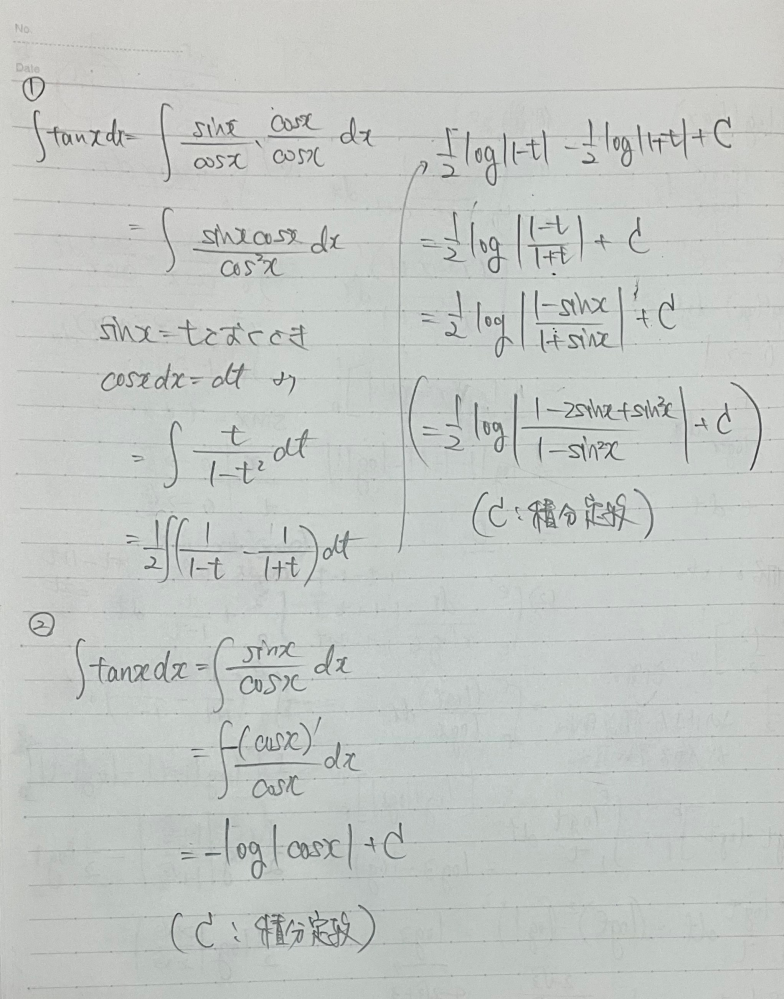 No.
Date
①
∫tanxdx = ∫ sinx/cosx · cosx/cosx dx
= ∫ sinxcosx/cos²x dx
sinx=tとおくとき
cosxdx=dt より
= ∫ t/(1-t²) dt
= 1/2 ∫(1/(1-t) - 1/(1+t)) dt
1/2 log|1-t| - 1/2 log|1+t| + C
= 1/2 log|(1-t)/(1+t)| + C
= 1/2 log|(1-sinx)/(1+sinx)| + C
(= 1/2 log|(1-2sinx+sin²x)/(1-sin²x)| + C)
(C:積分定数)
②
∫tanxdx = ∫ sinx/cosx dx
= ∫ -(cosx)'/cosx dx
= -log|cosx| + C
(C:積分定数)